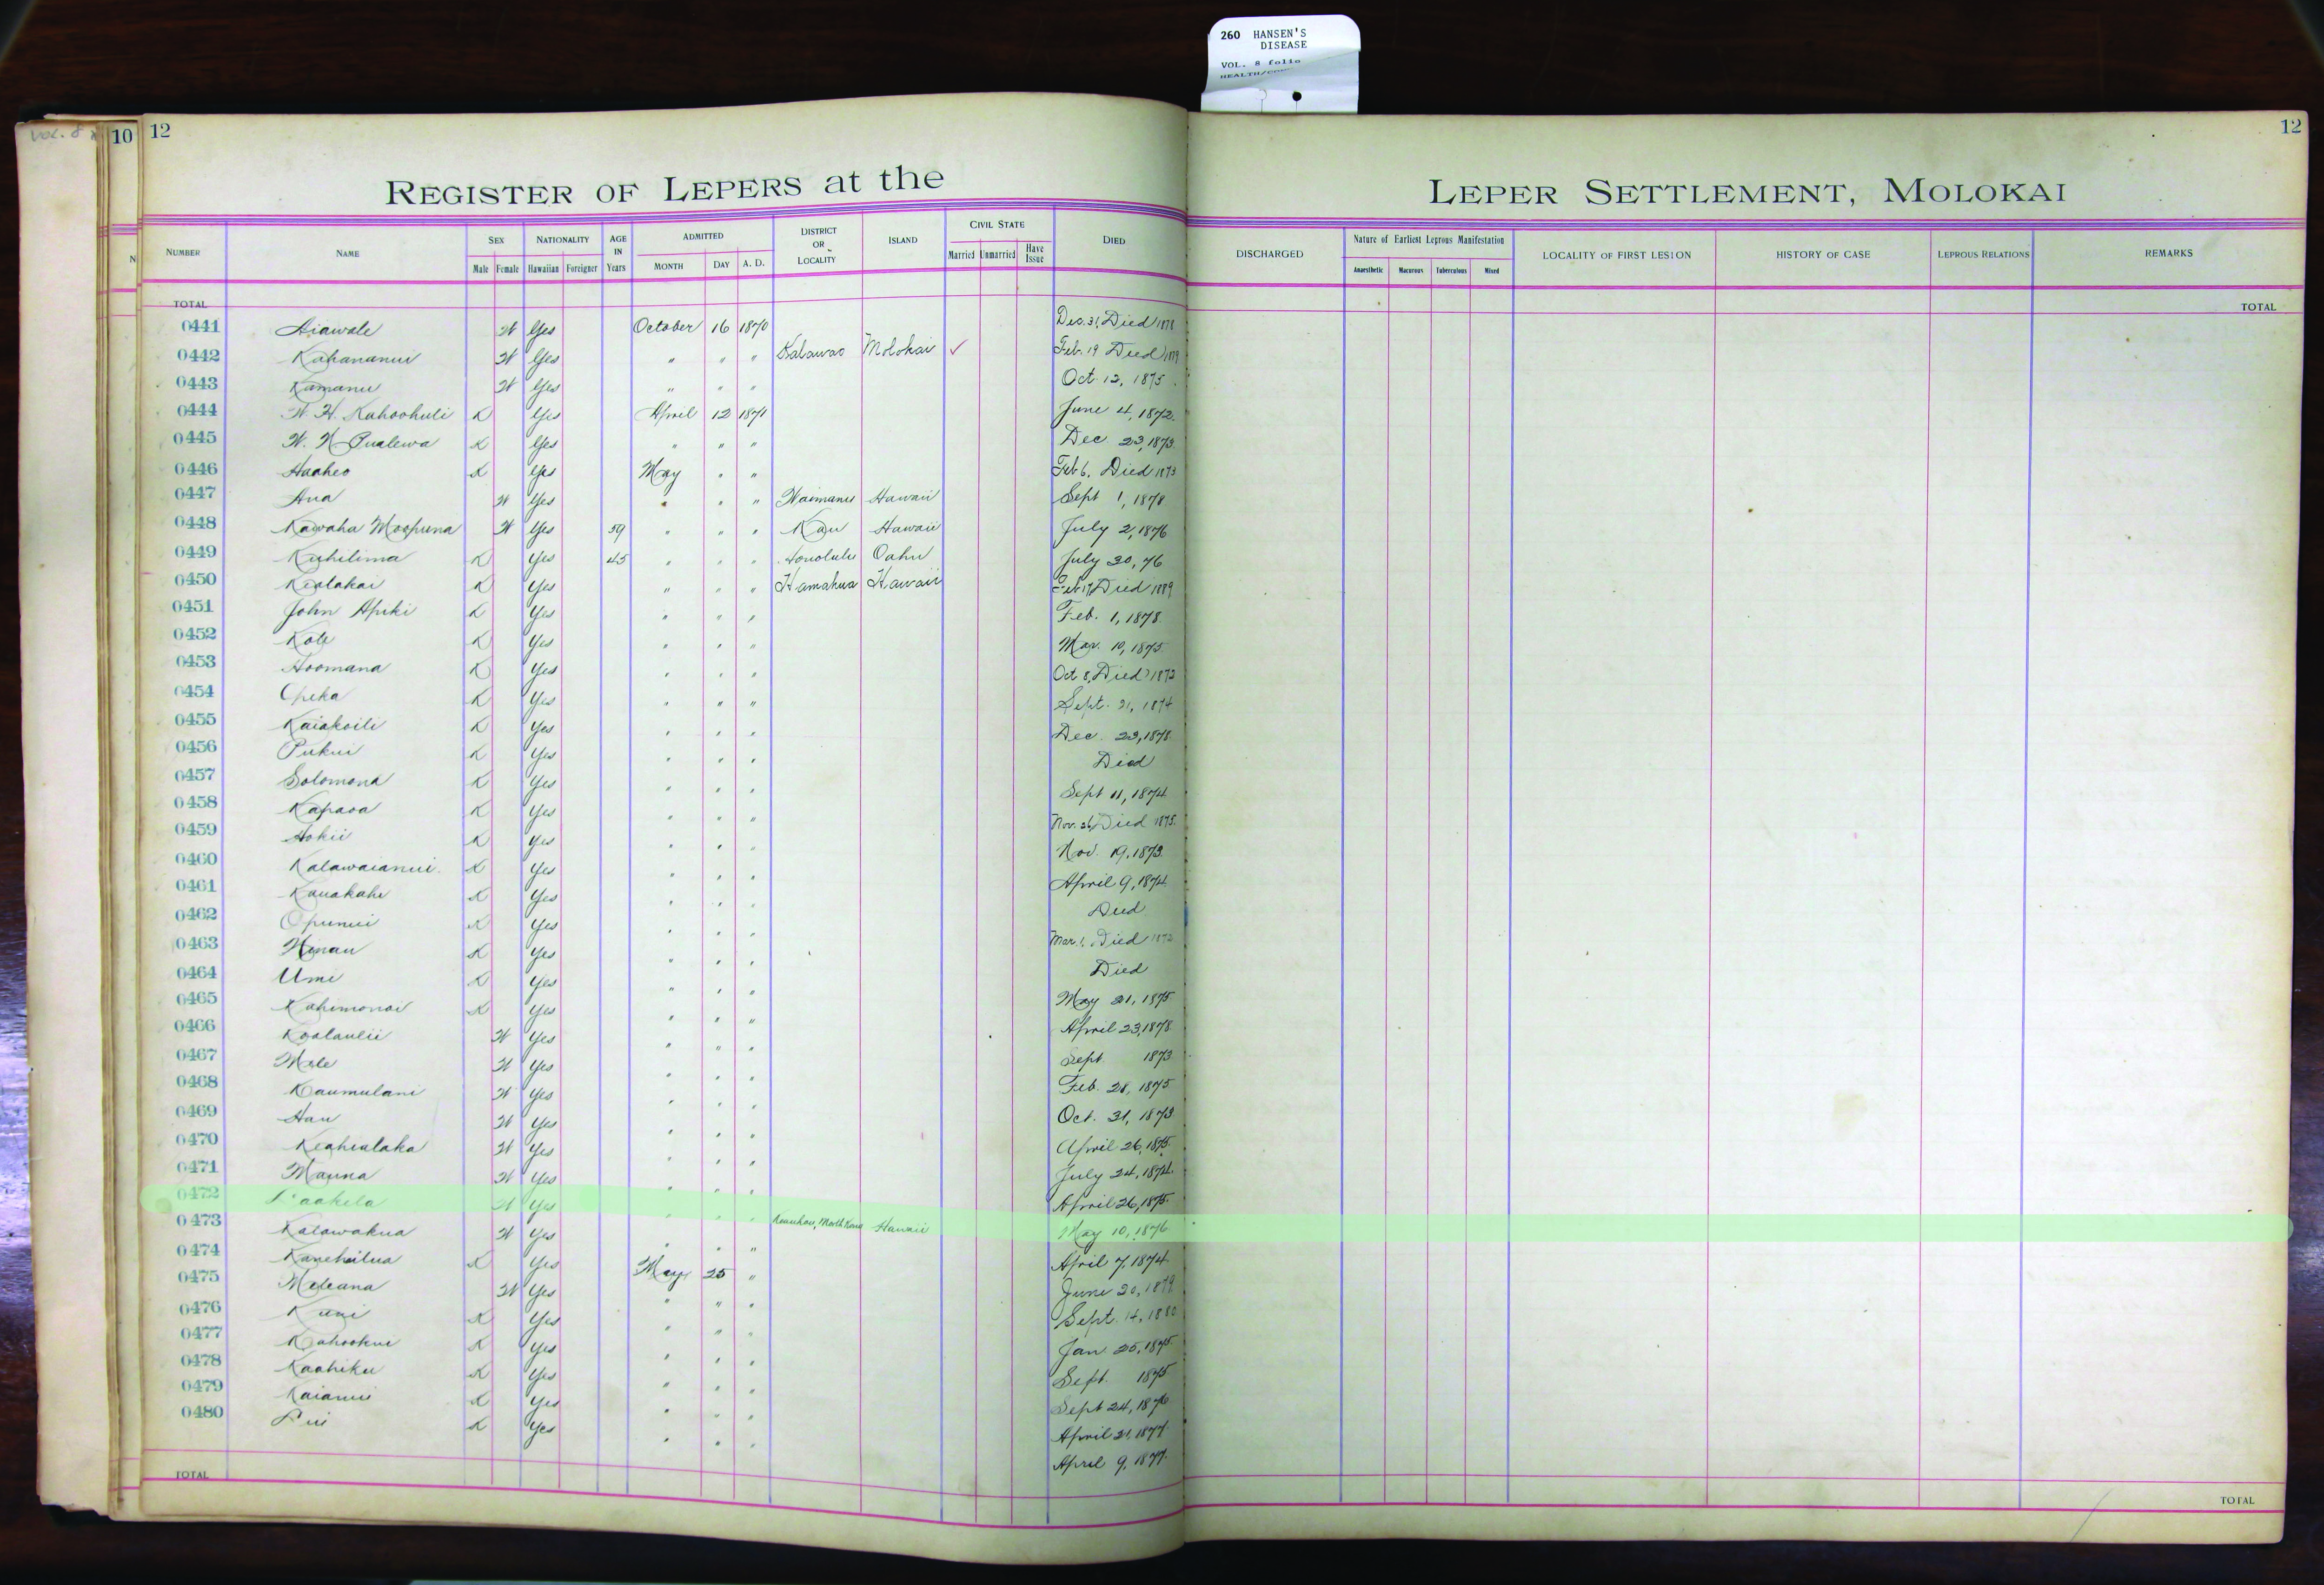 260 HANSEN'S
DISEASE
VOL. 8 folio
VOL. 8
10 12
12
REGISTER OF LEPERS at the LEPER SETTLEMENT, MOLOKAI
NUMBER NAME SEX Male Female NATIONALITY Hawaiian Foreigner AGE IN Years ADMITTED MONTH DAY A. D. DISTRICT OR LOCALITY ISLAND CIVIL STATE Married Unmarried Have Issue DIED DISCHARGED Nature of Earliest Leprous Manifestation Anaesthetic Macurous Tuberculous Mixed LOCALITY OF FIRST LESION HISTORY OF CASE LEPROUS RELATIONS REMARKS
TOTAL TOTAL
0441 Aiawale W Yes October 16 1870 Dec. 31, Died 1878
0442 Kahananui W Yes " " " Kalawao Molokai ✓ Feb. 19 Died
0443 Kamanu W Yes " " " Oct. 12, 1875
0444 W. H. Kahoohuli K Yes April 12 1871 June 4, 1872
0445 W. N. Pualewa K Yes " " " Dec 23, 1873
0446 Haaheo K Yes May " " Feb 6, Died 1873
0447 Ana W Yes " " " Waimanu Hawaii Sept 1, 1878
0448 Kawaha Moopuna W Yes 59 " " " Kau Hawaii July 2, 1876
0449 Kuhilima K Yes 45 " " " Honolulu Oahu July 30, 76
0450 Kealakai K Yes " " " Hamakua Hawaii Feb 17, Died 1889
0451 John Apiki K Yes " " " Feb. 1, 1878
0452 Kole K Yes " " " Mar. 10, 1875
0453 Hoomana K Yes " " " Oct 8, Died 1873
0454 Opeka K Yes " " " Sept. 21, 1874
0455 Kaiakoili K Yes " " " Dec. 23, 1878
0456 Pukui K Yes " " " Died
0457 Solomona K Yes " " " Sept 11, 1874
0458 Kapaoa K Yes " " " Nov. 26, Died 1875
0459 Hokii K Yes " " " Nov. 19, 1873
0460 Kalawaianui K Yes " " " April 9, 1874
0461 Kauakahi K Yes " " " Died
0462 Opunui K Yes " " " Mar. 1, Died
0463 Hinau K Yes " " " Died
0464 Umi K Yes " " " May 21, 1875
0465 Kahimonai K Yes " " " April 23, 1878
0466 Koolaulii W Yes " " " Sept 1873
0467 Mele W Yes " " " Feb. 28, 1875
0468 Kaumulani W Yes " " " Oct. 31, 1873
0469 Hau W Yes " " " April 26, 1875
0470 Keahialaka W Yes " " " July 24, 1874
0471 Mauna W Yes " " " April 26, 1875
0472 Paakela W Yes " " " Keauhou, North Kona Hawaii May 10, 1876
0473 Kalawakua W Yes " " " April 7, 1874
0474 Kanehailua K Yes May 25 " June 20, 1879
0475 Meleana W Yes " " " Sept. 14, 1880
0476 Kuni K Yes " " " Jan. 25, 1875
0477 Kahookui K Yes " " " Sept. 1875
0478 Kaahiku K Yes " " " Sept 24, 1876
0479 Kaianui K Yes " " " April 21, 1877
0480 Pui K Yes " " " April 9, 1877
TOTAL TOTAL